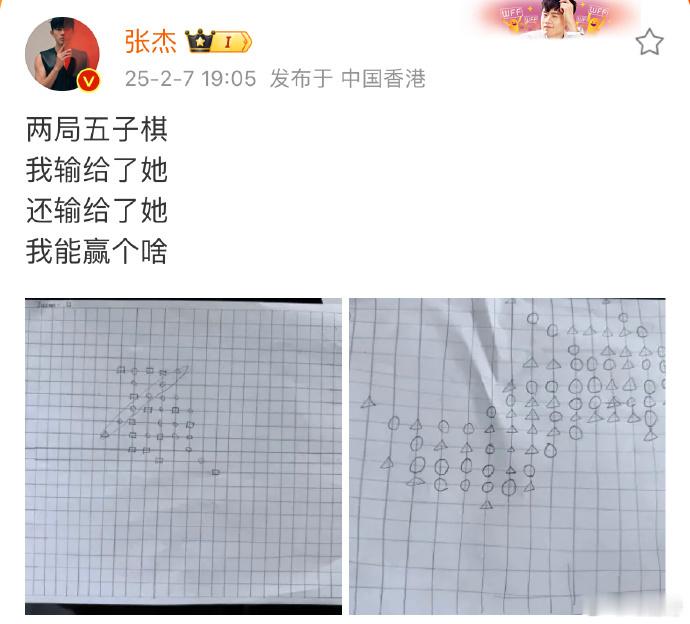 WFF
WFF
张杰
I
25-2-7 19:05 发布于 中国香港
两局五子棋
我输给了她
还输给了她
我能赢个啥